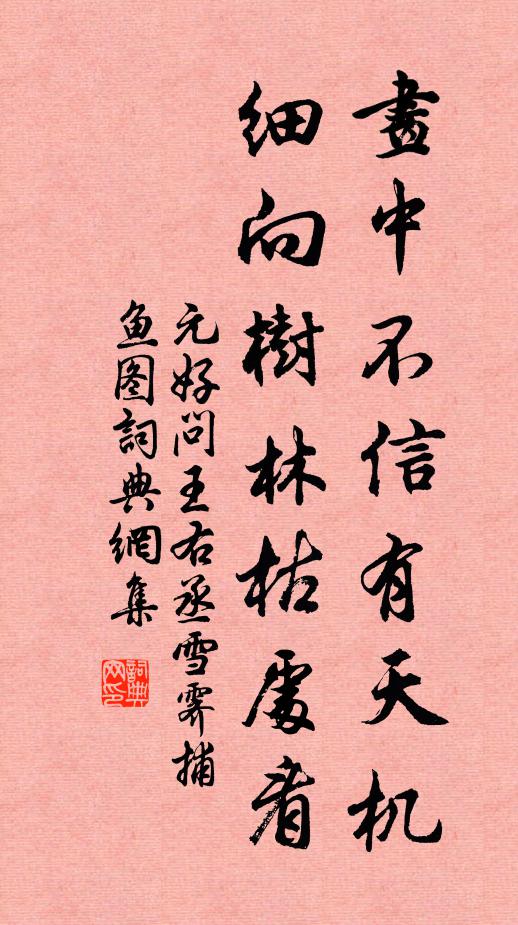 畫中不信有天机
細向樹林枯處看
元好问王右丞雪霁捕
鱼图詞典網集
詞典
网印